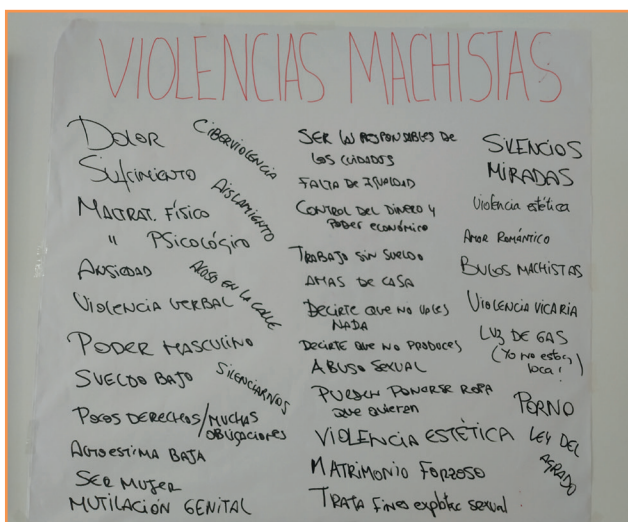 VIOLENCIAS MACHISTAS
DOLOR
CIBERVIOLENCIA
SUFRIMIENTO
AISLAMIENTO
MALTRAT. FÍSICO
" PSICOLÓGICO
ANSIEDAD
ACOSO EN LA CALLE
VIOLENCIA VERBAL
PODER MASCULINO
SUELDO BAJO
SILENCIARNOS
POCOS DERECHOS/MUCHAS
OBLIGACIONES
AUTOESTIMA BAJA
SER MUJER
MUTILACIÓN GENITAL
SER RESPONSABLES DE
LOS CUIDADOS
FALTA DE IGUALDAD
CONTROL DEL DINERO Y
PODER ECONÓMICO
TRABAJO SIN SUELDO
AMAS DE CASA
DECIRTE QUE NO VALES
NADA
DECIRTE QUE NO PRODUCES
ABUSO SEXUAL
PUEDEN PONERSE ROPA
QUE QUIEREN
VIOLENCIA ESTÉTICA
MATRIMONIO FORZOSO
TRATA FINES explotac sexual
SILENCIOS
MIRADAS
Violencia estética
AMOR ROMÁNTICO
BULOS MACHISTAS
VIOLENCIA VICARIA
LUZ DE GAS
(Yo no estoy
loca!)
PORNO
LEY DEL
AGRADO